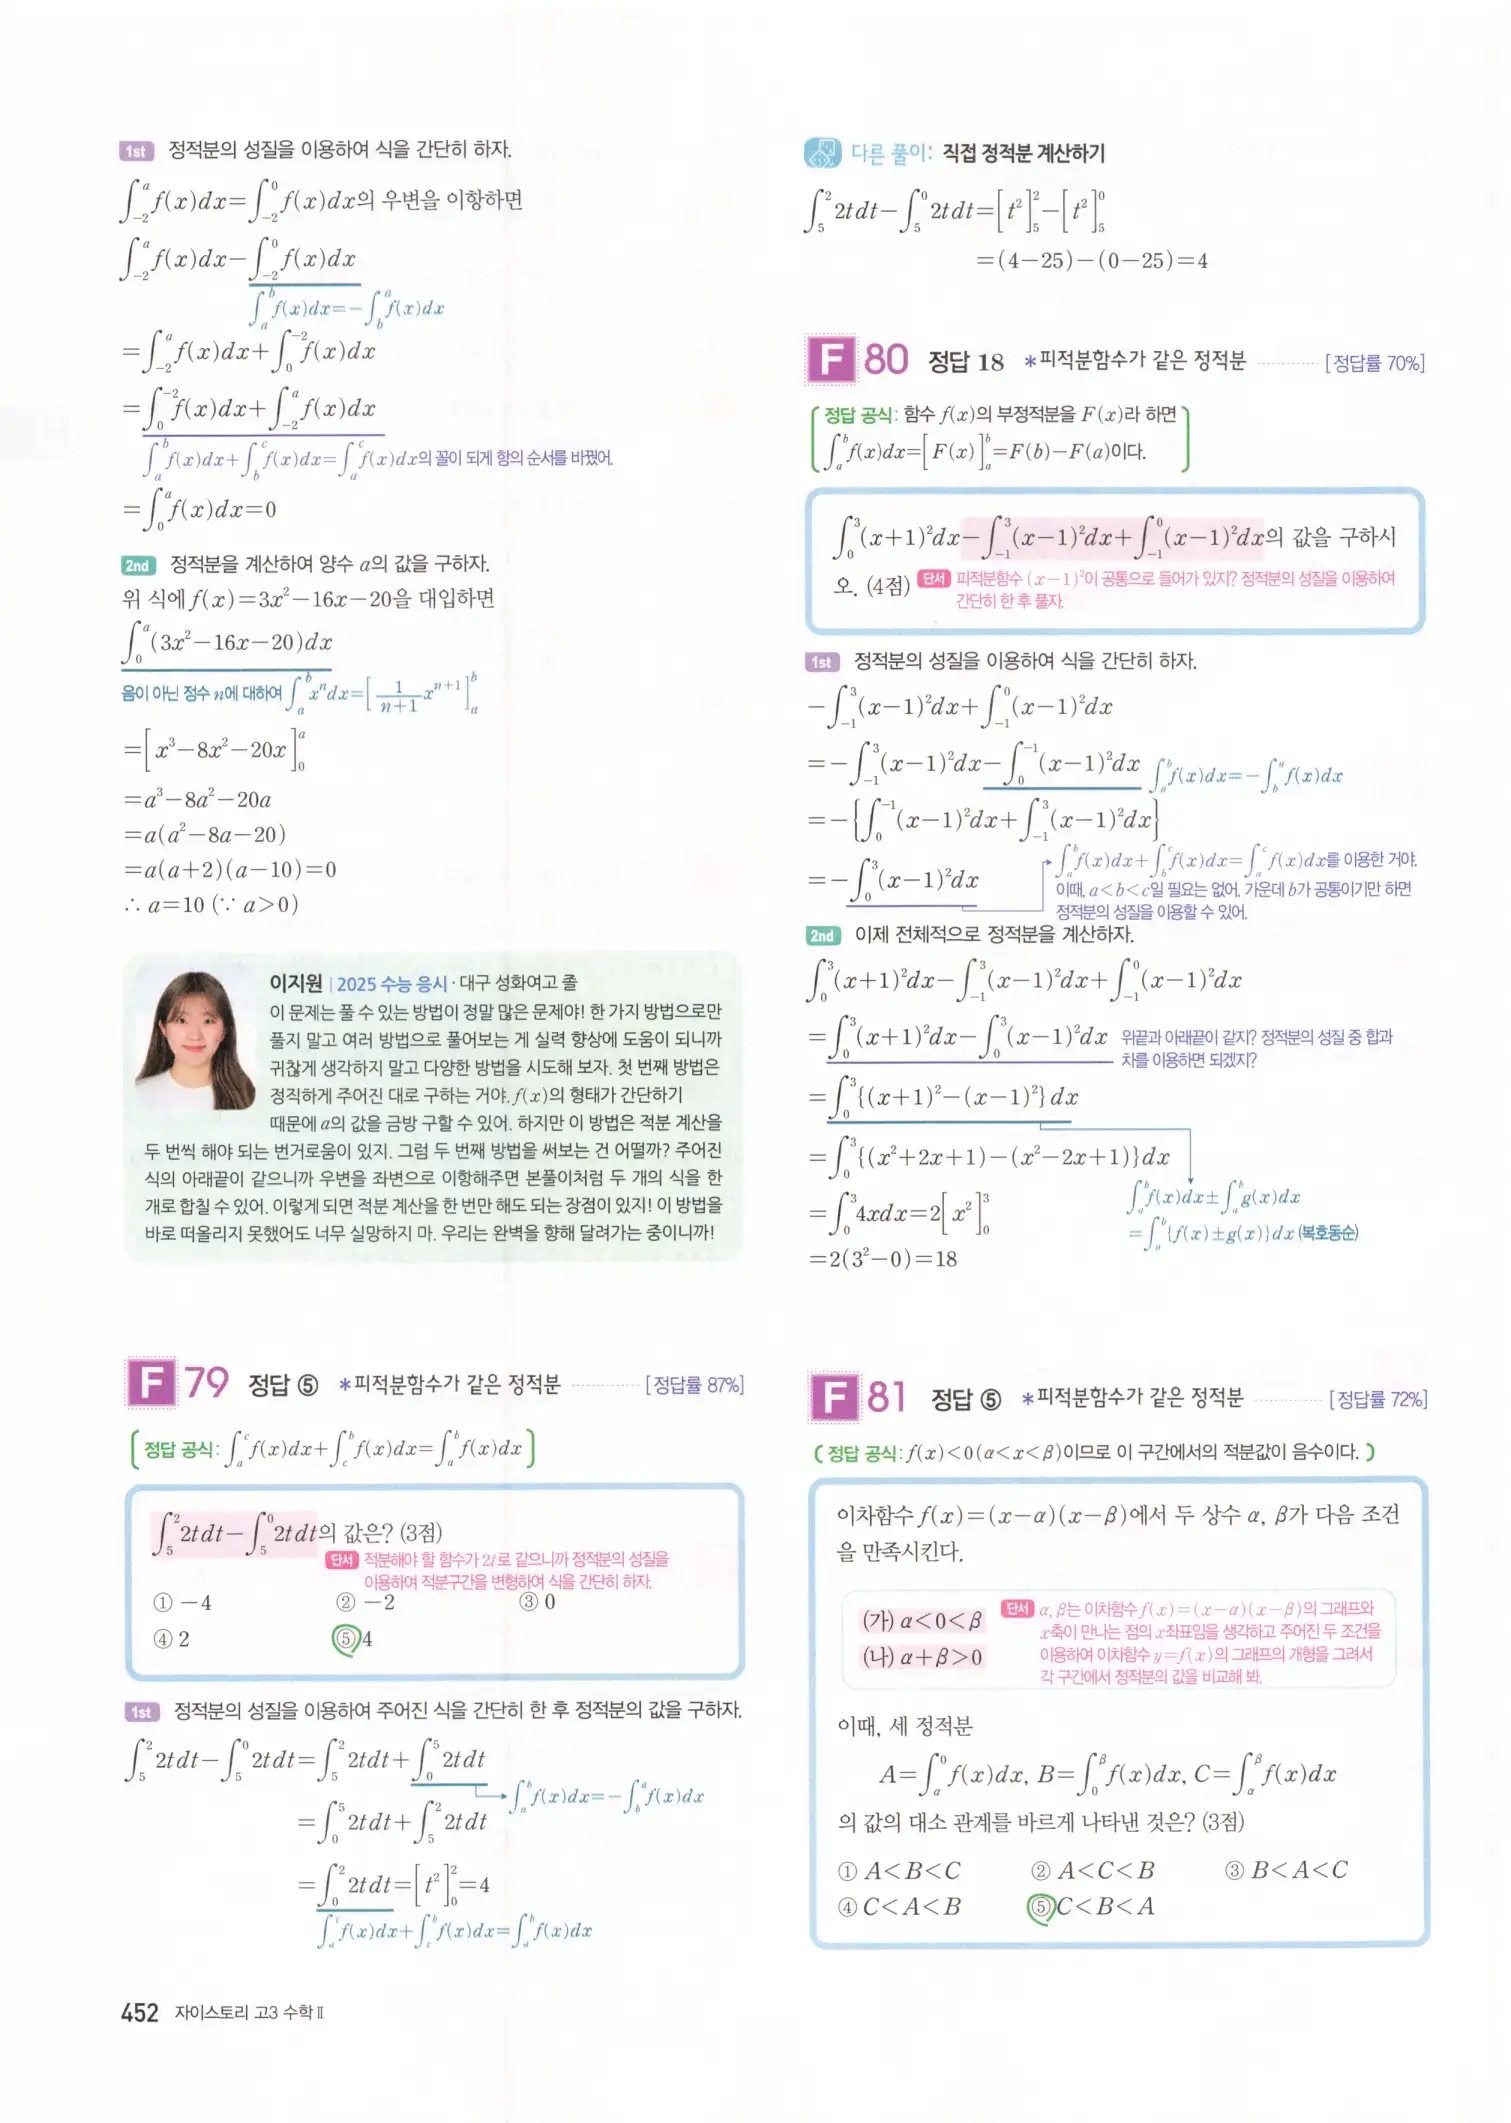 1st 정적분의 성질을 이용하여 식을 간단히 하자.
∫_{-2}^{a} f(x)dx=∫_{-2}^{0} f(x)dx의 우변을 이항하면
∫_{-2}^{a} f(x)dx-∫_{-2}^{0} f(x)dx
∫_{a}^{b} f(x)dx=-∫_{b}^{a} f(x)dx
=∫_{-2}^{a} f(x)dx+∫_{0}^{-2} f(x)dx
=∫_{0}^{-2} f(x)dx+∫_{-2}^{a} f(x)dx
∫_{a}^{b} f(x)dx+∫_{b}^{c} f(x)dx=∫_{a}^{c} f(x)dx의 꼴이 되게 항의 순서를 바꿨어.
=∫_{0}^{a} f(x)dx=0
2nd 정적분을 계산하여 양수 a의 값을 구하자.
위 식에 f(x)=3x²-16x-20을 대입하면
∫_{0}^{a} (3x²-16x-20)dx
음이 아닌 정수 n에 대하여 ∫_{a}^{b} xⁿdx=[1/(n+1) x^{n+1}]_{a}^{b}
=[x³-8x²-20x]_{0}^{a}
=a³-8a²-20a
=a(a²-8a-20)
=a(a+2)(a-10)=0
∴ a=10 (∵ a>0)
이지원 | 2025 수능 응시 · 대구 성화여고 졸
이 문제는 풀 수 있는 방법이 정말 많은 문제야! 한 가지 방법으로만
풀지 말고 여러 방법으로 풀어보는 게 실력 향상에 도움이 되니까
귀찮게 생각하지 말고 다양한 방법을 시도해 보자. 첫 번째 방법은
정직하게 주어진 대로 구하는 거야. f(x)의 형태가 간단하기
때문에 a의 값을 금방 구할 수 있어. 하지만 이 방법은 적분 계산을
두 번씩 해야 되는 번거로움이 있지. 그럼 두 번째 방법을 써보는 건 어떨까? 주어진
식의 아래끝이 같으니까 우변을 좌변으로 이항해주면 본풀이처럼 두 개의 식을 한
개로 합칠 수 있어. 이렇게 되면 적분 계산을 한 번만 해도 되는 장점이 있지! 이 방법을
바로 떠올리지 못했어도 너무 실망하지 마. 우리는 완벽을 향해 달려가는 중이니까!
F 79 정답 ⑤ *피적분함수가 같은 정적분 ············ [정답률 87%]
(정답 공식: ∫_{a}^{c} f(x)dx+∫_{c}^{b} f(x)dx=∫_{a}^{b} f(x)dx)
∫_{5}^{2} 2tdt-∫_{5}^{0} 2tdt의 값은? (3점)
단서 적분해야 할 함수가 2t로 같으니까 정적분의 성질을
이용하여 적분구간을 변형하여 식을 간단히 하자.
① -4 ② -2 ③ 0
④ 2 ⑤ 4
1st 정적분의 성질을 이용하여 주어진 식을 간단히 한 후 정적분의 값을 구하자.
∫_{5}^{2} 2tdt-∫_{5}^{0} 2tdt=∫_{5}^{2} 2tdt+∫_{0}^{5} 2tdt
∫_{a}^{b} f(x)dx=-∫_{b}^{a} f(x)dx
=∫_{0}^{5} 2tdt+∫_{5}^{2} 2tdt
=∫_{0}^{2} 2tdt=[t²]_{0}^{2}=4
∫_{a}^{c} f(x)dx+∫_{c}^{b} f(x)dx=∫_{a}^{b} f(x)dx
452 자이스토리 고3 수학 Ⅱ
다른 풀이: 직접 정적분 계산하기
∫_{5}^{2} 2tdt-∫_{5}^{0} 2tdt=[t²]_{5}^{2}-[t²]_{5}^{0}
=(4-25)-(0-25)=4
F 80 정답 18 *피적분함수가 같은 정적분 ············ [정답률 70%]
(정답 공식: 함수 f(x)의 부정적분을 F(x)라 하면
∫_{a}^{b} f(x)dx=[F(x)]_{a}^{b}=F(b)-F(a)이다.)
∫_{0}^{3} (x+1)²dx-∫_{-1}^{3} (x-1)²dx+∫_{-1}^{0} (x-1)²dx의 값을 구하시
오. (4점) 단서 피적분함수 (x-1)²이 공통으로 들어가 있지? 정적분의 성질을 이용하여
간단히 한 후 풀자.
1st 정적분의 성질을 이용하여 식을 간단히 하자.
-∫_{-1}^{3} (x-1)²dx+∫_{-1}^{0} (x-1)²dx
=-∫_{-1}^{3} (x-1)²dx-∫_{0}^{-1} (x-1)²dx ∫_{a}^{b} f(x)dx=-∫_{b}^{a} f(x)dx
=-{∫_{0}^{-1} (x-1)²dx+∫_{-1}^{3} (x-1)²dx}
=-∫_{0}^{3} (x-1)²dx
∫_{a}^{b} f(x)dx+∫_{b}^{c} f(x)dx=∫_{a}^{c} f(x)dx를 이용한 거야.
이때, a<b<c일 필요는 없어. 가운데 b가 공통이기만 하면
정적분의 성질을 이용할 수 있어.
2nd 이제 전체적으로 정적분을 계산하자.
∫_{0}^{3} (x+1)²dx-∫_{-1}^{3} (x-1)²dx+∫_{-1}^{0} (x-1)²dx
=∫_{0}^{3} (x+1)²dx-∫_{0}^{3} (x-1)²dx 위끝과 아래끝이 같지? 정적분의 성질 중 합과
차를 이용하면 되겠지?
=∫_{0}^{3} {(x+1)²-(x-1)²}dx
=∫_{0}^{3} {(x²+2x+1)-(x²-2x+1)}dx
=∫_{0}^{3} 4xdx=2[x²]_{0}^{3}
∫_{a}^{b} f(x)dx±∫_{a}^{b} g(x)dx
=∫_{a}^{b} {f(x)±g(x)}dx (복호동순)
=2(3²-0)=18
F 81 정답 ⑤ *피적분함수가 같은 정적분 ············ [정답률 72%]
(정답 공식: f(x)<0(α<x<β)이므로 이 구간에서의 적분값이 음수이다.)
이차함수 f(x)=(x-α)(x-β)에서 두 상수 α, β가 다음 조건
을 만족시킨다.
(가) α<0<β
(나) α+β>0
단서 α, β는 이차함수 f(x)=(x-α)(x-β)의 그래프와
x축이 만나는 점의 x좌표임을 생각하고 주어진 두 조건을
이용하여 이차함수 y=f(x)의 그래프의 개형을 그려서
각 구간에서 정적분의 값을 비교해 봐.
이때, 세 정적분
A=∫_{α}^{0} f(x)dx, B=∫_{0}^{β} f(x)dx, C=∫_{α}^{β} f(x)dx
의 값의 대소 관계를 바르게 나타낸 것은? (3점)
① A<B<C ② A<C<B ③ B<A<C
④ C<A<B ⑤ C<B<A